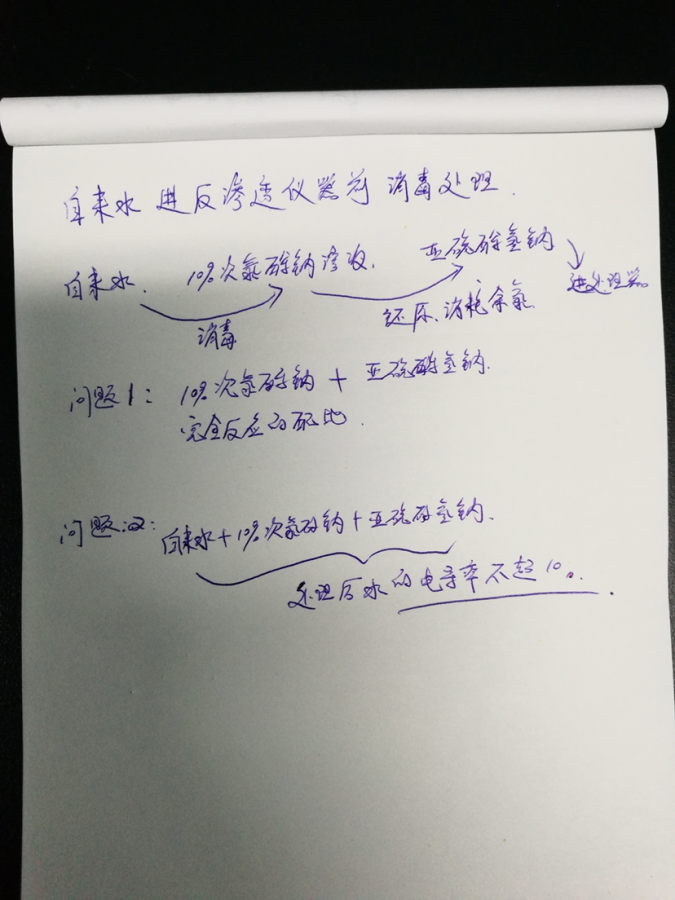 自来水 进反渗透仪器前 消毒处理.
自来水. 10%次氯酸钠溶液. 亚硫酸氢钠 进处理器
消毒 还原、消耗余氯
问题1: 10%次氯酸钠 + 亚硫酸氢钠.
完全反应的配比.
问题2: 自来水+10%次氯酸钠+亚硫酸氢钠.
处理后水的电导率不超10.